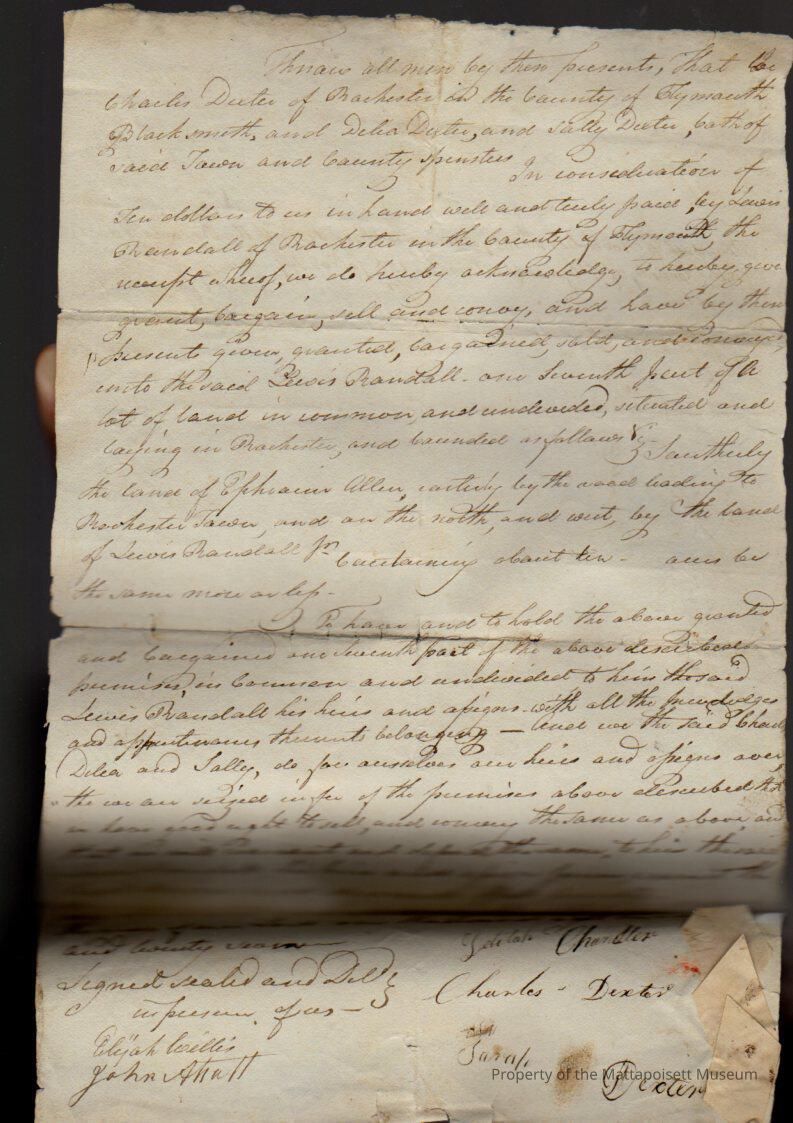 Know all men by these presents, that We
Charles Dexter of Rochester in the County of Plymouth
Blacksmith, and Delia Dexter, and Sally Dexter, both of
said Town and County spinsters In consideration of
Ten dollars to us in hand well and truly paid, by Lewis
Randall of Rochester in the County of Plymouth, the
receipt whereof, we do hereby acknowledge, to hereby give
grant, bargain, sell and convey, and have by these
presents given, granted, bargained, sold, and conveyed,
unto the said Lewis Randall - one seventh part of a
lot of land in common, and undevided, situated and
laying in Rochester, and bounded as follows viz Southerly
the land of Ephraim Allen, easterly by the road leading to
Rochester Town, and on the north, and west, by the land
of Lewis Randall Jr containing about ten - acres be
the same more or less -
To have and to hold the above granted
and bargained one seventh part of the above described
premises, in common and undevided to him the said
Lewis Randall his heirs and assigns with all the priviledges
and appurtenances thereunto belonging — And we the said Charles
Delia and Sally, do for ourselves our heirs and assigns aver
the we are seized in fee of the premises above described that
we have good right to sell, and convey the same as above and
and twenty seven
Signed sealed and Deld Delilah Chandler
in presence of us — Charles Dexter
Elijah Willis
John Sarah
Dexter
Property of the Mattapoisett Museum